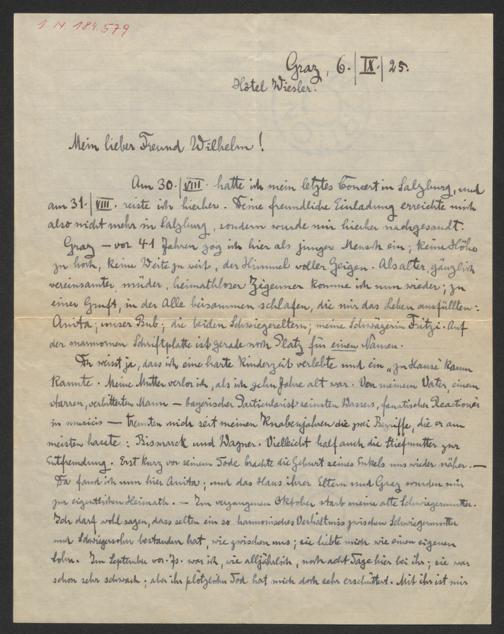 I. N. 184.579
Graz, 6./IX./25.
Hôtel Wiesler.
Mein lieber Freund Wilhelm!
Am 30./VIII. hatte ich mein letztes Concert in Salzburg, und
am 31./VIII. reiste ich hierher. Deine freundliche Einladung erreichte mich
also nicht mehr in Salzburg, sondern wurde mir hierher nachgesandt.
Graz – vor 41 Jahren zog ich hier als junger Mensch ein; keine Höhe
zu hoch, keine Weite zu weit, der Himmel voller Geigen. Als alter, gänzlich
vereinsamter, müder, heimathloser Zigeuner komme ich nun wieder; zu
einer Gruft, in der Alle beisammen schlafen, die mir das Leben ausfüllten:
Anita; unser Bub; die beiden Schwiegereltern; meine Schwägerin Fritzi. Auf
der marmornen Schriftplatte ist gerade noch Platz für einen Namen.
Du weisst ja, dass ich eine harte Kinderzeit verlebte und ein „zu Hause" kaum
kannte. Meine Mutter verlor ich, als ich zehn Jahre alt war. Von meinem Vater, einem
starren, verbitterten Mann – bayerischer Particularist reinsten Wassers, fanatischer Reactionär
in musicis – trennten mich seit meinen Knabenjahren die zwei Begriffe, die er am
meisten hasste: Bismarck und Wagner. Vielleicht half auch die Stiefmutter zur
Entfremdung. Erst kurz vor seinem Tode brachte die Geburt seines Enkels uns wieder näher. –
Da fand ich nun hier Anita; und das Haus ihrer Eltern und Graz wurden mir
zur eigentlichen Heimath. – Im vergangenen Oktober starb meine alte Schwiegermutter.
Ich darf wohl sagen, dass selten ein so harmonisches Verhältniss zwischen Schwiegermutter
und Schwiegersohn bestanden hat, wie zwischen uns; sie liebte mich wie einen eigenen
Sohn. Im September vor. Js. war ich, wie alljährlich, noch acht Tage hier bei ihr; sie war
schon sehr schwach; aber ihr plötzlicher Tod hat mich doch sehr erschüttert. Mit ihr ist mir